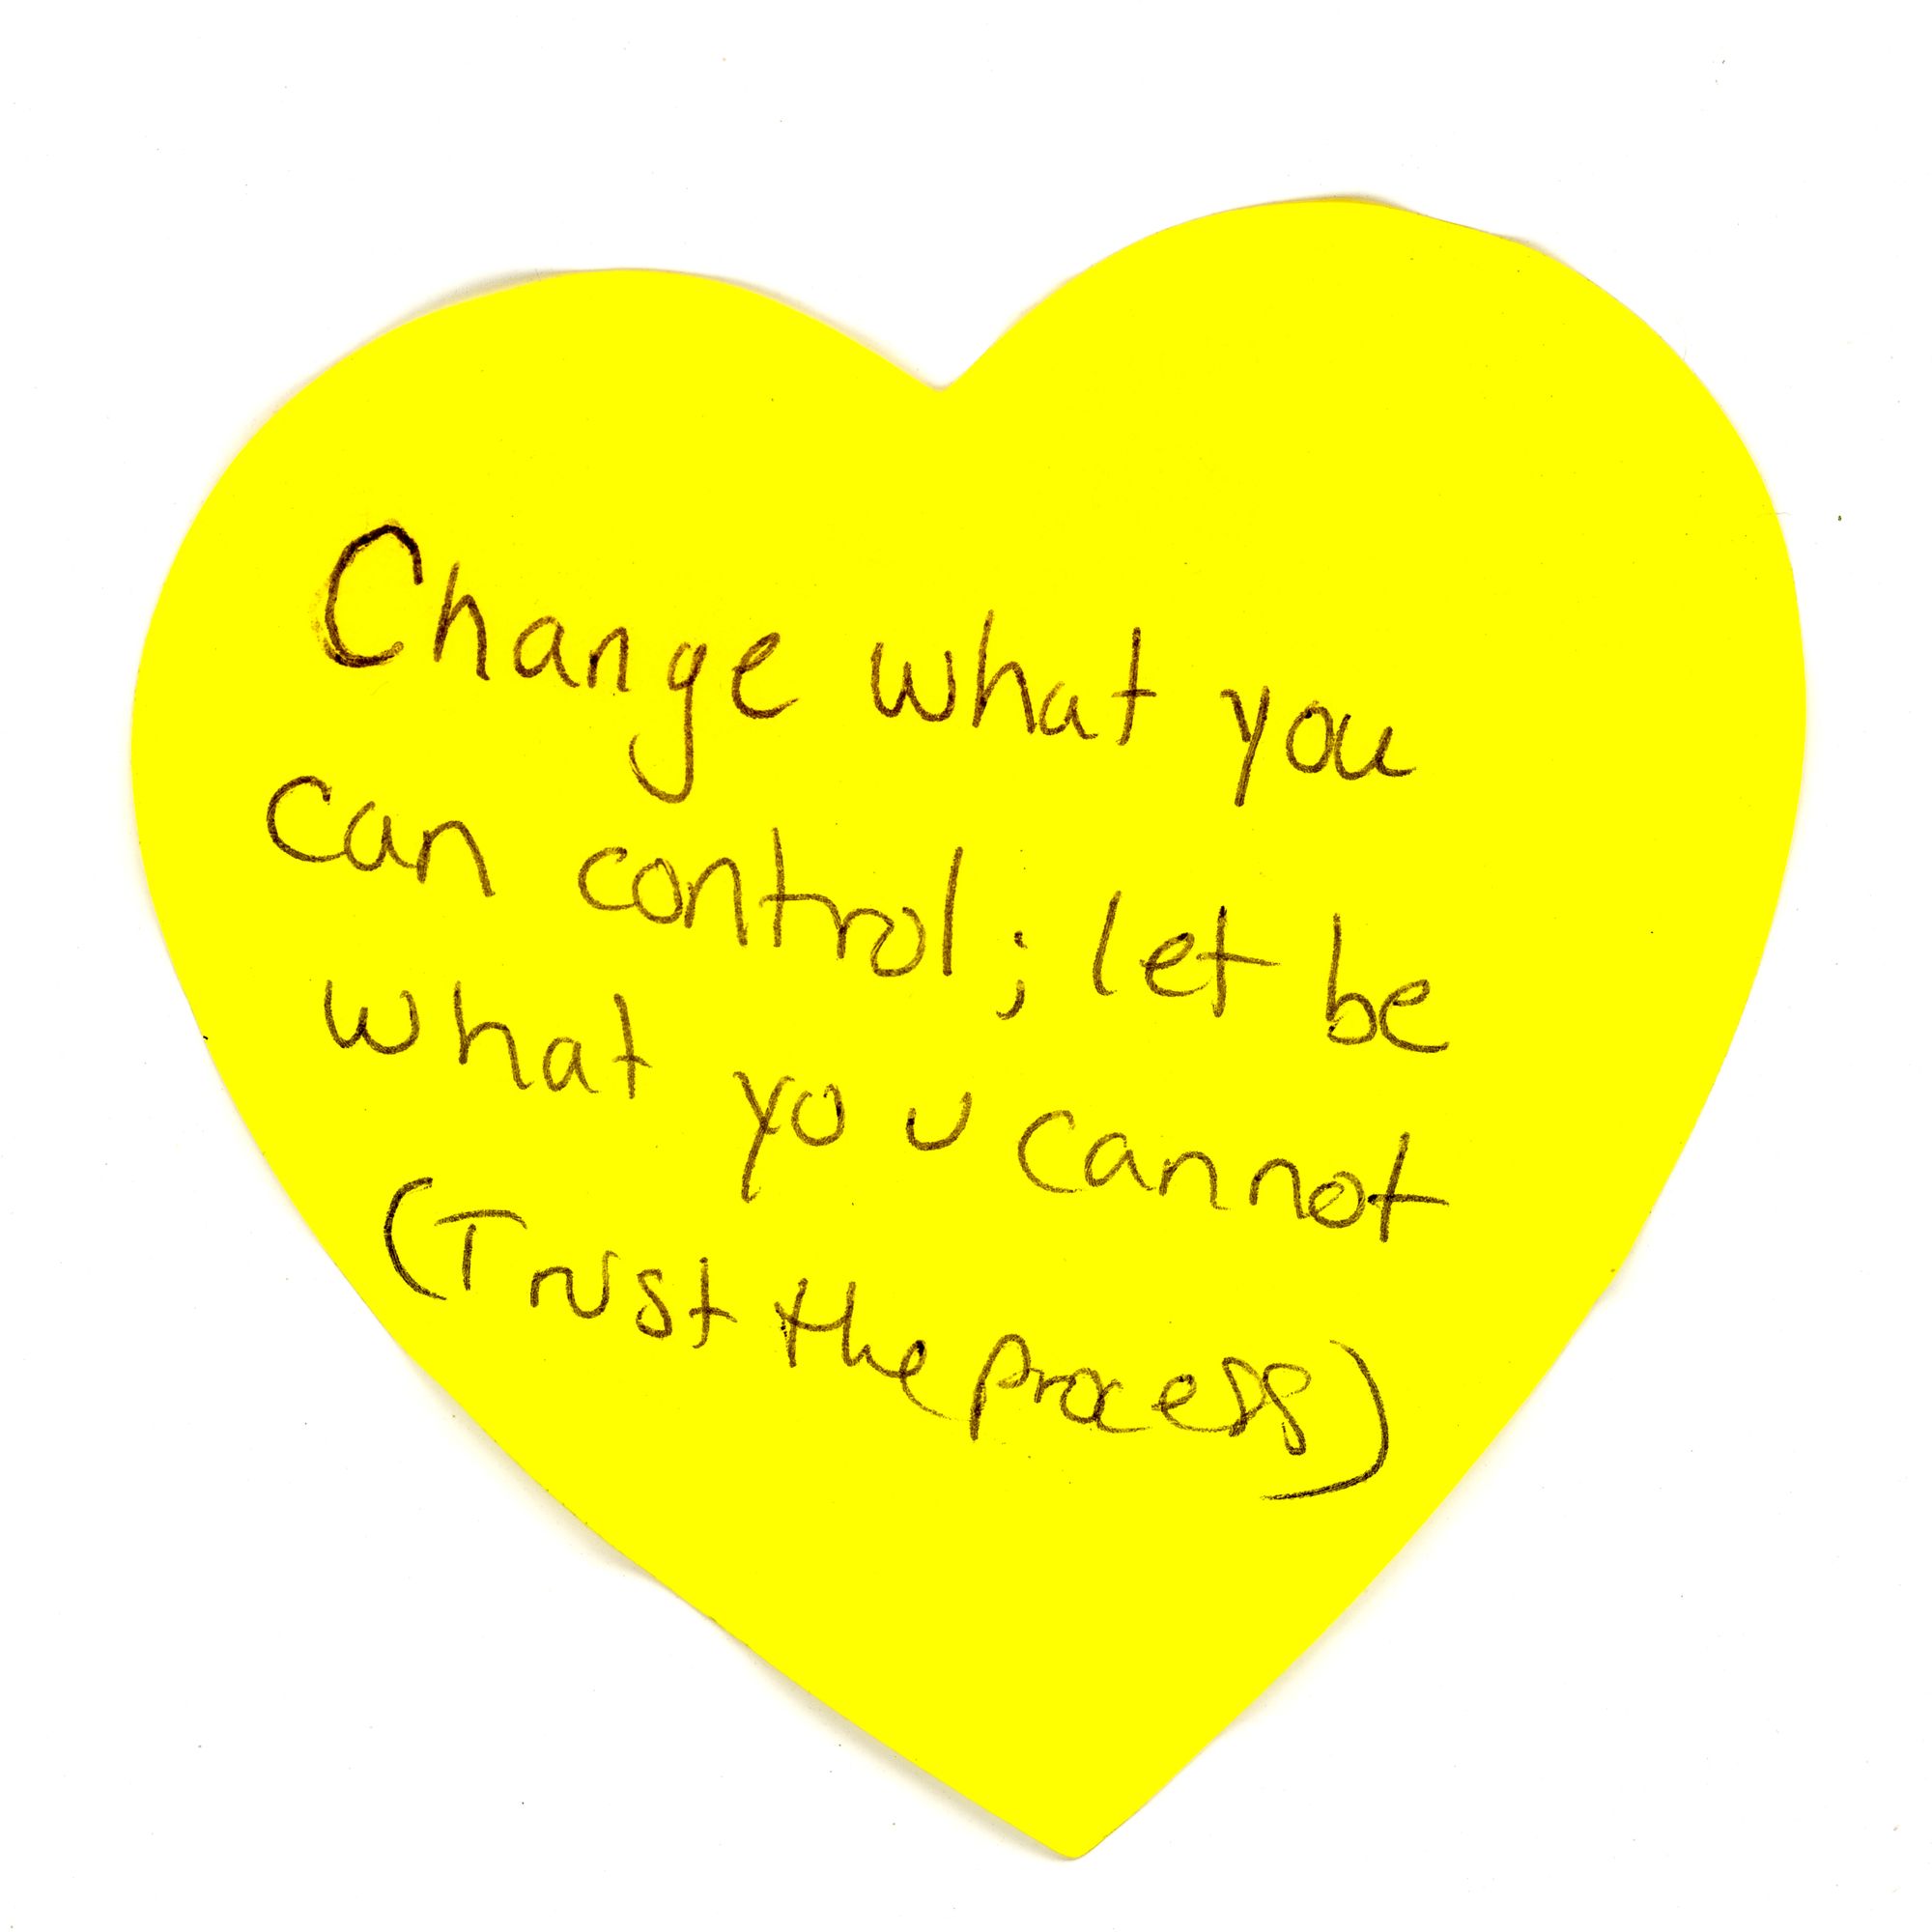 Change what you
can control; let be
what you cannot
(Trust the process)